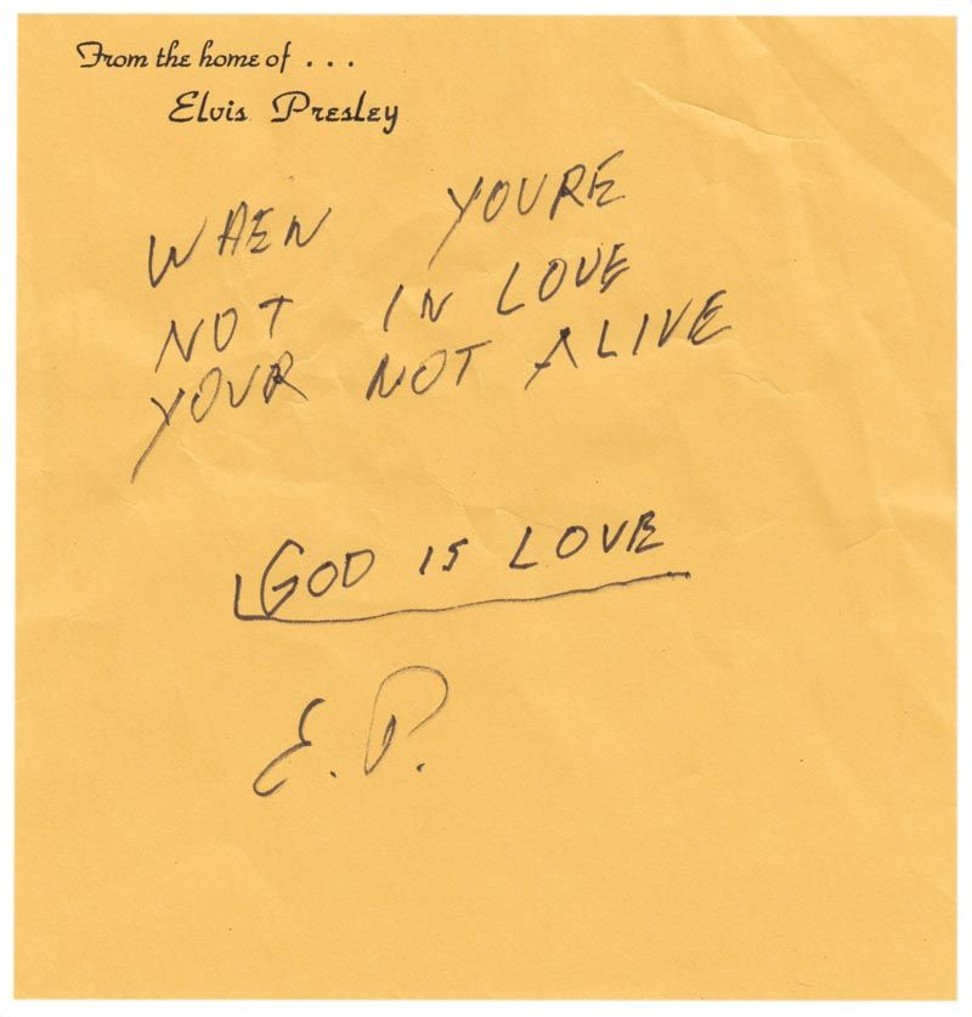 From the home of . . .
Elvis Presley
WHEN YOURE
NOT IN LOVE
YOUR NOT ALIVE
GOD IS LOVE
E. P.